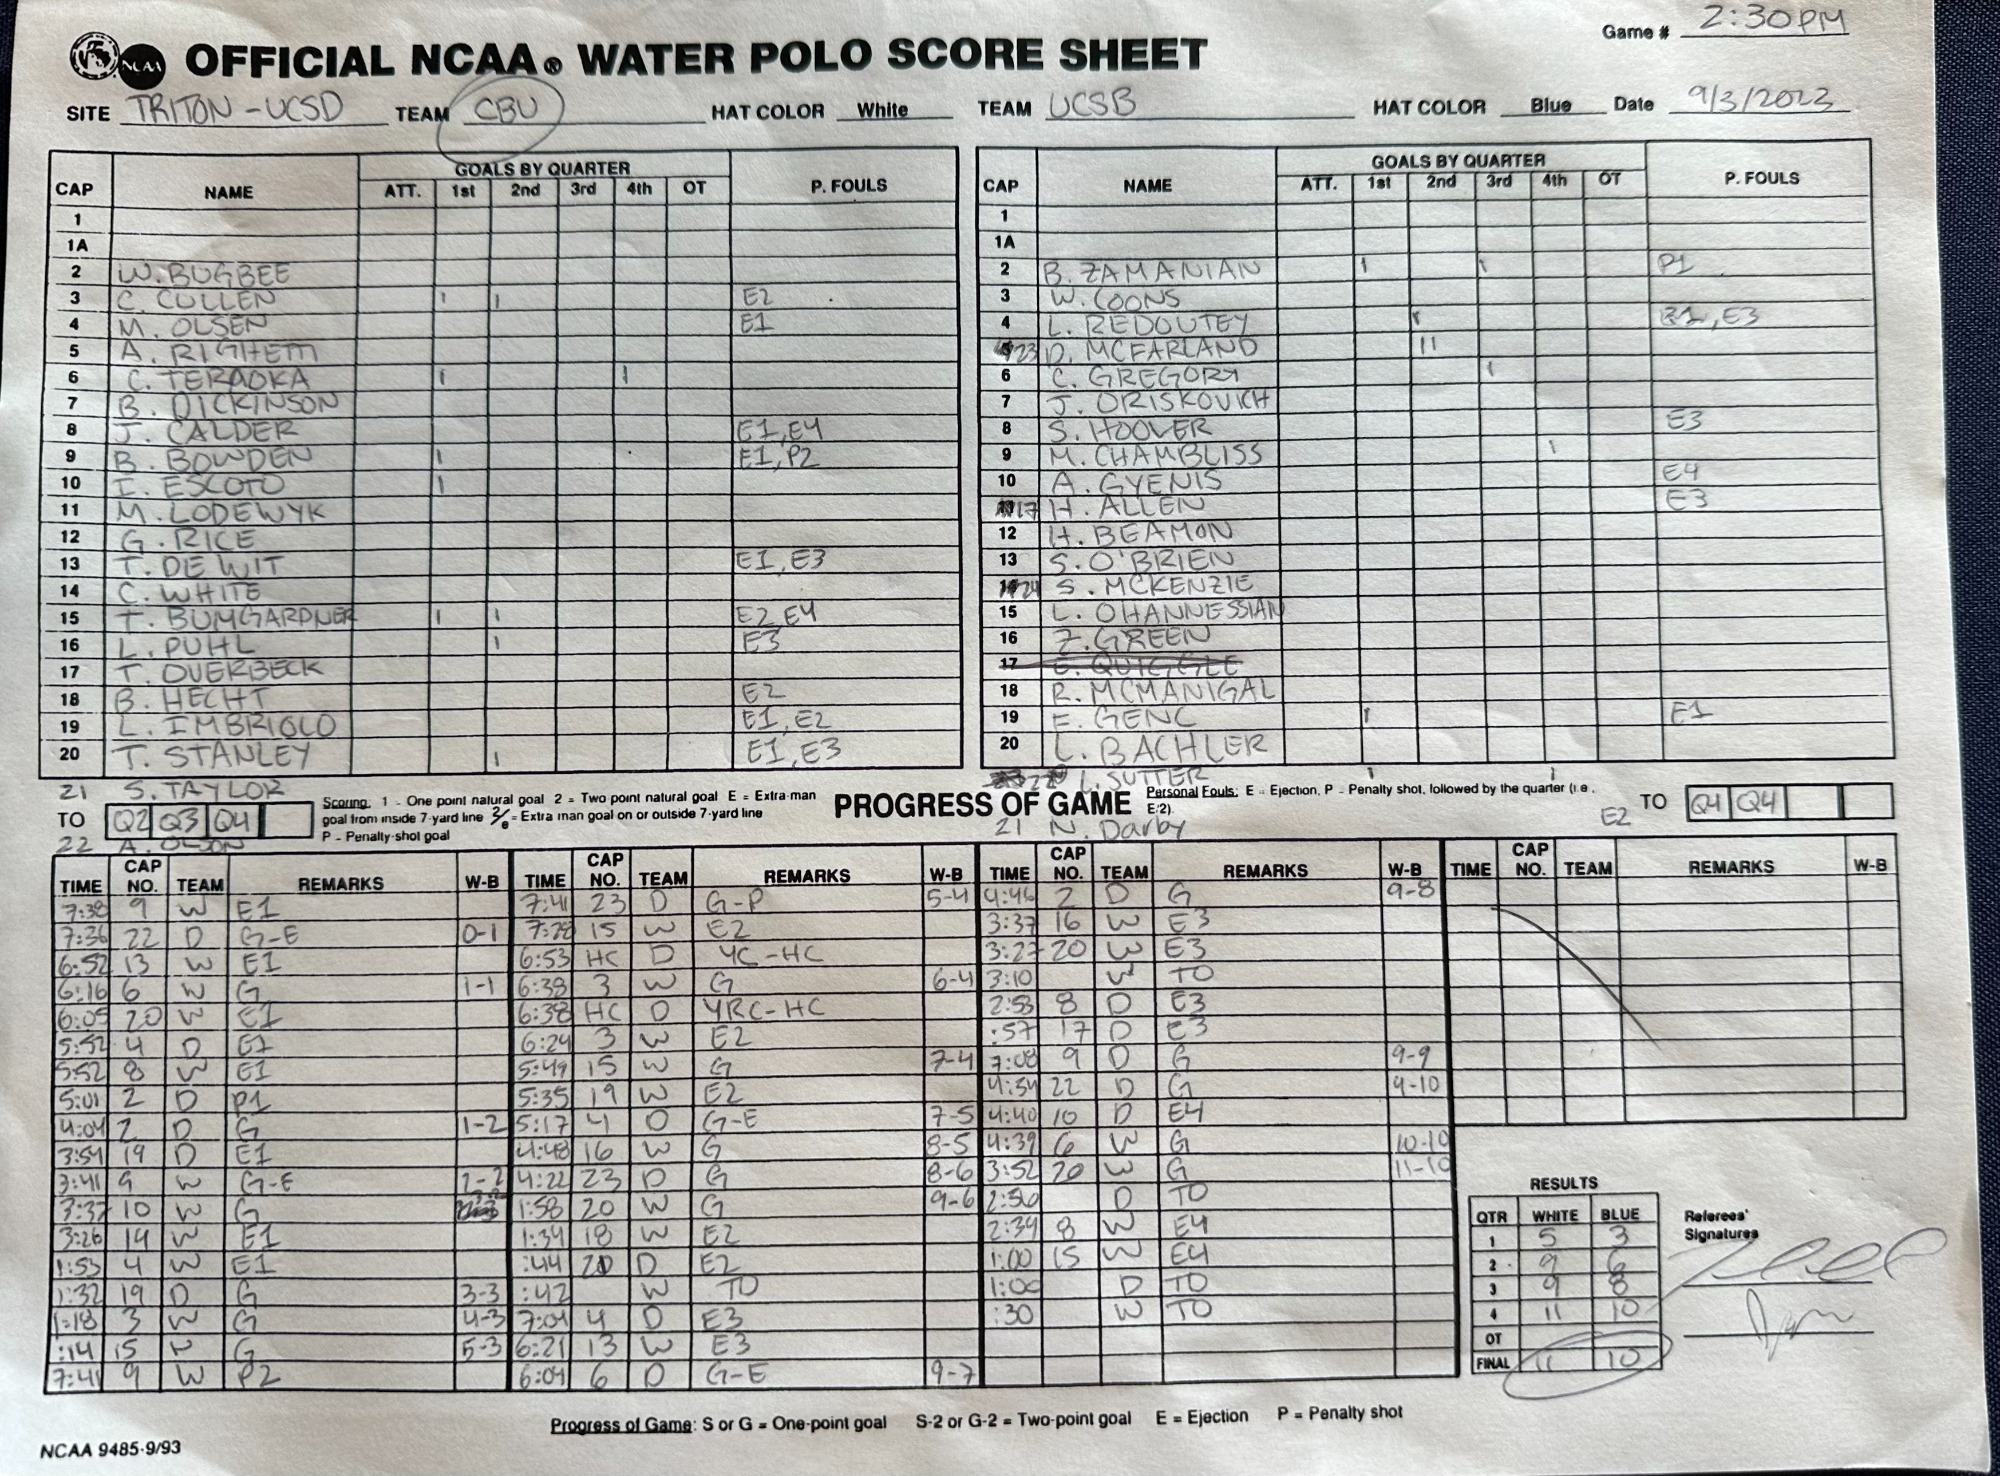 Game # 2:30PM
NCAA OFFICIAL NCAA® WATER POLO SCORE SHEET
SITE TRITON-UCSD TEAM CBU HAT COLOR White TEAM UCSB HAT COLOR Blue Date 9/3/2023
CAP NAME ATT. GOALS BY QUARTER 1st 2nd 3rd 4th OT P. FOULS
1
1A
2 W. BUGBEE
3 C. CULLEN I I E2
4 M. OLSEN E1
5 A. RIGHETTI
6 C. TERAOKA I I
7 B. DICKINSON
8 J. CALDER E1, E4
9 B. BOWDEN I E1, P2
10 I. ESCOTO I
11 M. LODEWYK
12 G. RICE
13 T. DE WIT E1, E3
14 C. WHITE
15 T. BUMGARDNER I I E2, E4
16 L. PUHL I E3
17 T. OVERBECK
18 B. HECHT E2
19 L. IMBRIOLO E1, E2
20 T. STANLEY I E1, E3
21 S. TAYLOR
22 A. OLSON
TO Q2 Q3 Q4
CAP NAME ATT. GOALS BY QUARTER 1st 2nd 3rd 4th OT P. FOULS
1
1A
2 B. ZAMANIAN I I P1
3 W. COONS
4 L. REDOUTEY I E3
23 D. MCFARLAND II
6 C. GREGORY I
7 J. ORISKOVICH
8 S. HOOVER E3
9 M. CHAMBLISS I
10 A. GYENIS E4
17 H. ALLEN E3
12 H. BEAMON
13 S. O'BRIEN
24 S. MCKENZIE
15 L. OHANNESSIAN
16 Z. GREEN
17 E. QUIGGLE
18 R. MCMANIGAL
19 E. GENC I E1
20 L. BACHLER
22 L. SUTTER I I
21 N. Darby E2
TO Q4 Q4
Scoring: 1 - One point natural goal 2 = Two point natural goal E = Extra-man
goal from inside 7-yard line 2/e = Extra man goal on or outside 7-yard line
P - Penalty-shot goal
PROGRESS OF GAME
Personal Fouls: E = Ejection, P - Penalty shot, followed by the quarter (i.e.,
E/2).
TIME CAP NO. TEAM REMARKS W-B
7:38 9 W E1
7:36 22 D G-E 0-1
6:52 13 W E1
6:16 6 W G 1-1
6:05 20 W E1
5:52 4 D E1
5:52 8 W E1
5:01 2 D P1
4:04 2 D G 1-2
3:54 19 D E1
3:41 9 W G-E 2-2
3:37 10 W G
3:26 19 W E1
1:53 4 W E1
1:32 19 D G 3-3
1:18 3 W G 4-3
:14 15 W G 5-3
7:41 9 W P2
TIME CAP NO. TEAM REMARKS W-B
7:41 23 D G-P 5-4
7:28 15 W E2
6:53 HC D YC-HC
6:38 3 W G 6-4
6:38 HC D YRC-HC
6:24 3 W E2
5:49 15 W G 7-4
5:35 19 W E2
5:17 4 D G-E 7-5
4:48 16 W G 8-5
4:22 23 D G 8-6
1:58 20 W G 9-6
1:34 18 W E2
:44 21 D E2
:42 W TO
7:04 4 D E3
6:21 13 W E3
6:04 6 D G-E 9-7
TIME CAP NO. TEAM REMARKS W-B
4:46 2 D G 9-8
3:37 16 W E3
3:27 20 W E3
3:10 W TO
2:53 8 D E3
:57 17 D E3
7:08 9 D G 9-9
4:54 22 D G 9-10
4:40 10 D E4
4:39 6 W G 10-10
3:52 20 W G 11-10
2:56 D TO
2:39 8 W E4
1:00 15 W E4
1:00 D TO
:30 W TO
TIME CAP NO. TEAM REMARKS W-B
RESULTS
QTR WHITE BLUE
1 5 3
2 9 6
3 9 8
4 11 10
OT
FINAL 11 10
Referees'
Signatures
Progress of Game: S or G = One-point goal S-2 or G-2 = Two-point goal E = Ejection P = Penalty shot
NCAA 9485-9/93